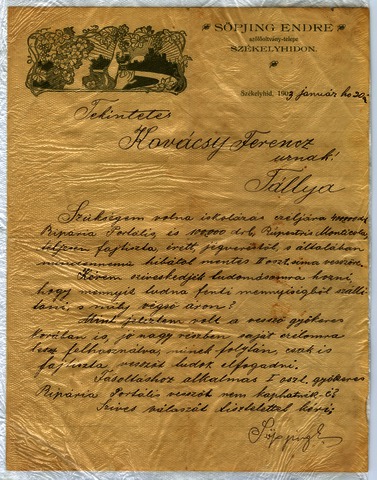 SÖPJING ENDRE
szőlőoltvány-telepe
SZÉKELYHIDON.
Székelyhid, 1903 január hó 20án
Tekintetes
Kovácsy Ferencz
urnak!
Tállya
Szükségem volna iskolázás czéljára
Riparia Portalis, és 100,000 drb. Rupestris Monticola
teljesen fajtiszta, érett, jegveréstől, s általában
mindennemü hibától mentes II oszt. sima vesszőre.
Kérem sziveskedjék tudomásomra hozni,
hogy mennyit tudna fenti mennyiségből szálli-
tani, s mily végső áron?
Mint jeleztem volt a vessző gyökeres
korában is, jó nagy részben saját czélomra
lesz felhasználva, minek folytán, csak is
fajtiszta, vesszőt tudok elfogadni.
Fásoltáshoz alkalmas I oszt. gyökeres
Riparia Portalis vesszőt nem kaphatnék-é?
Szives válaszát tisztelettel kéri: